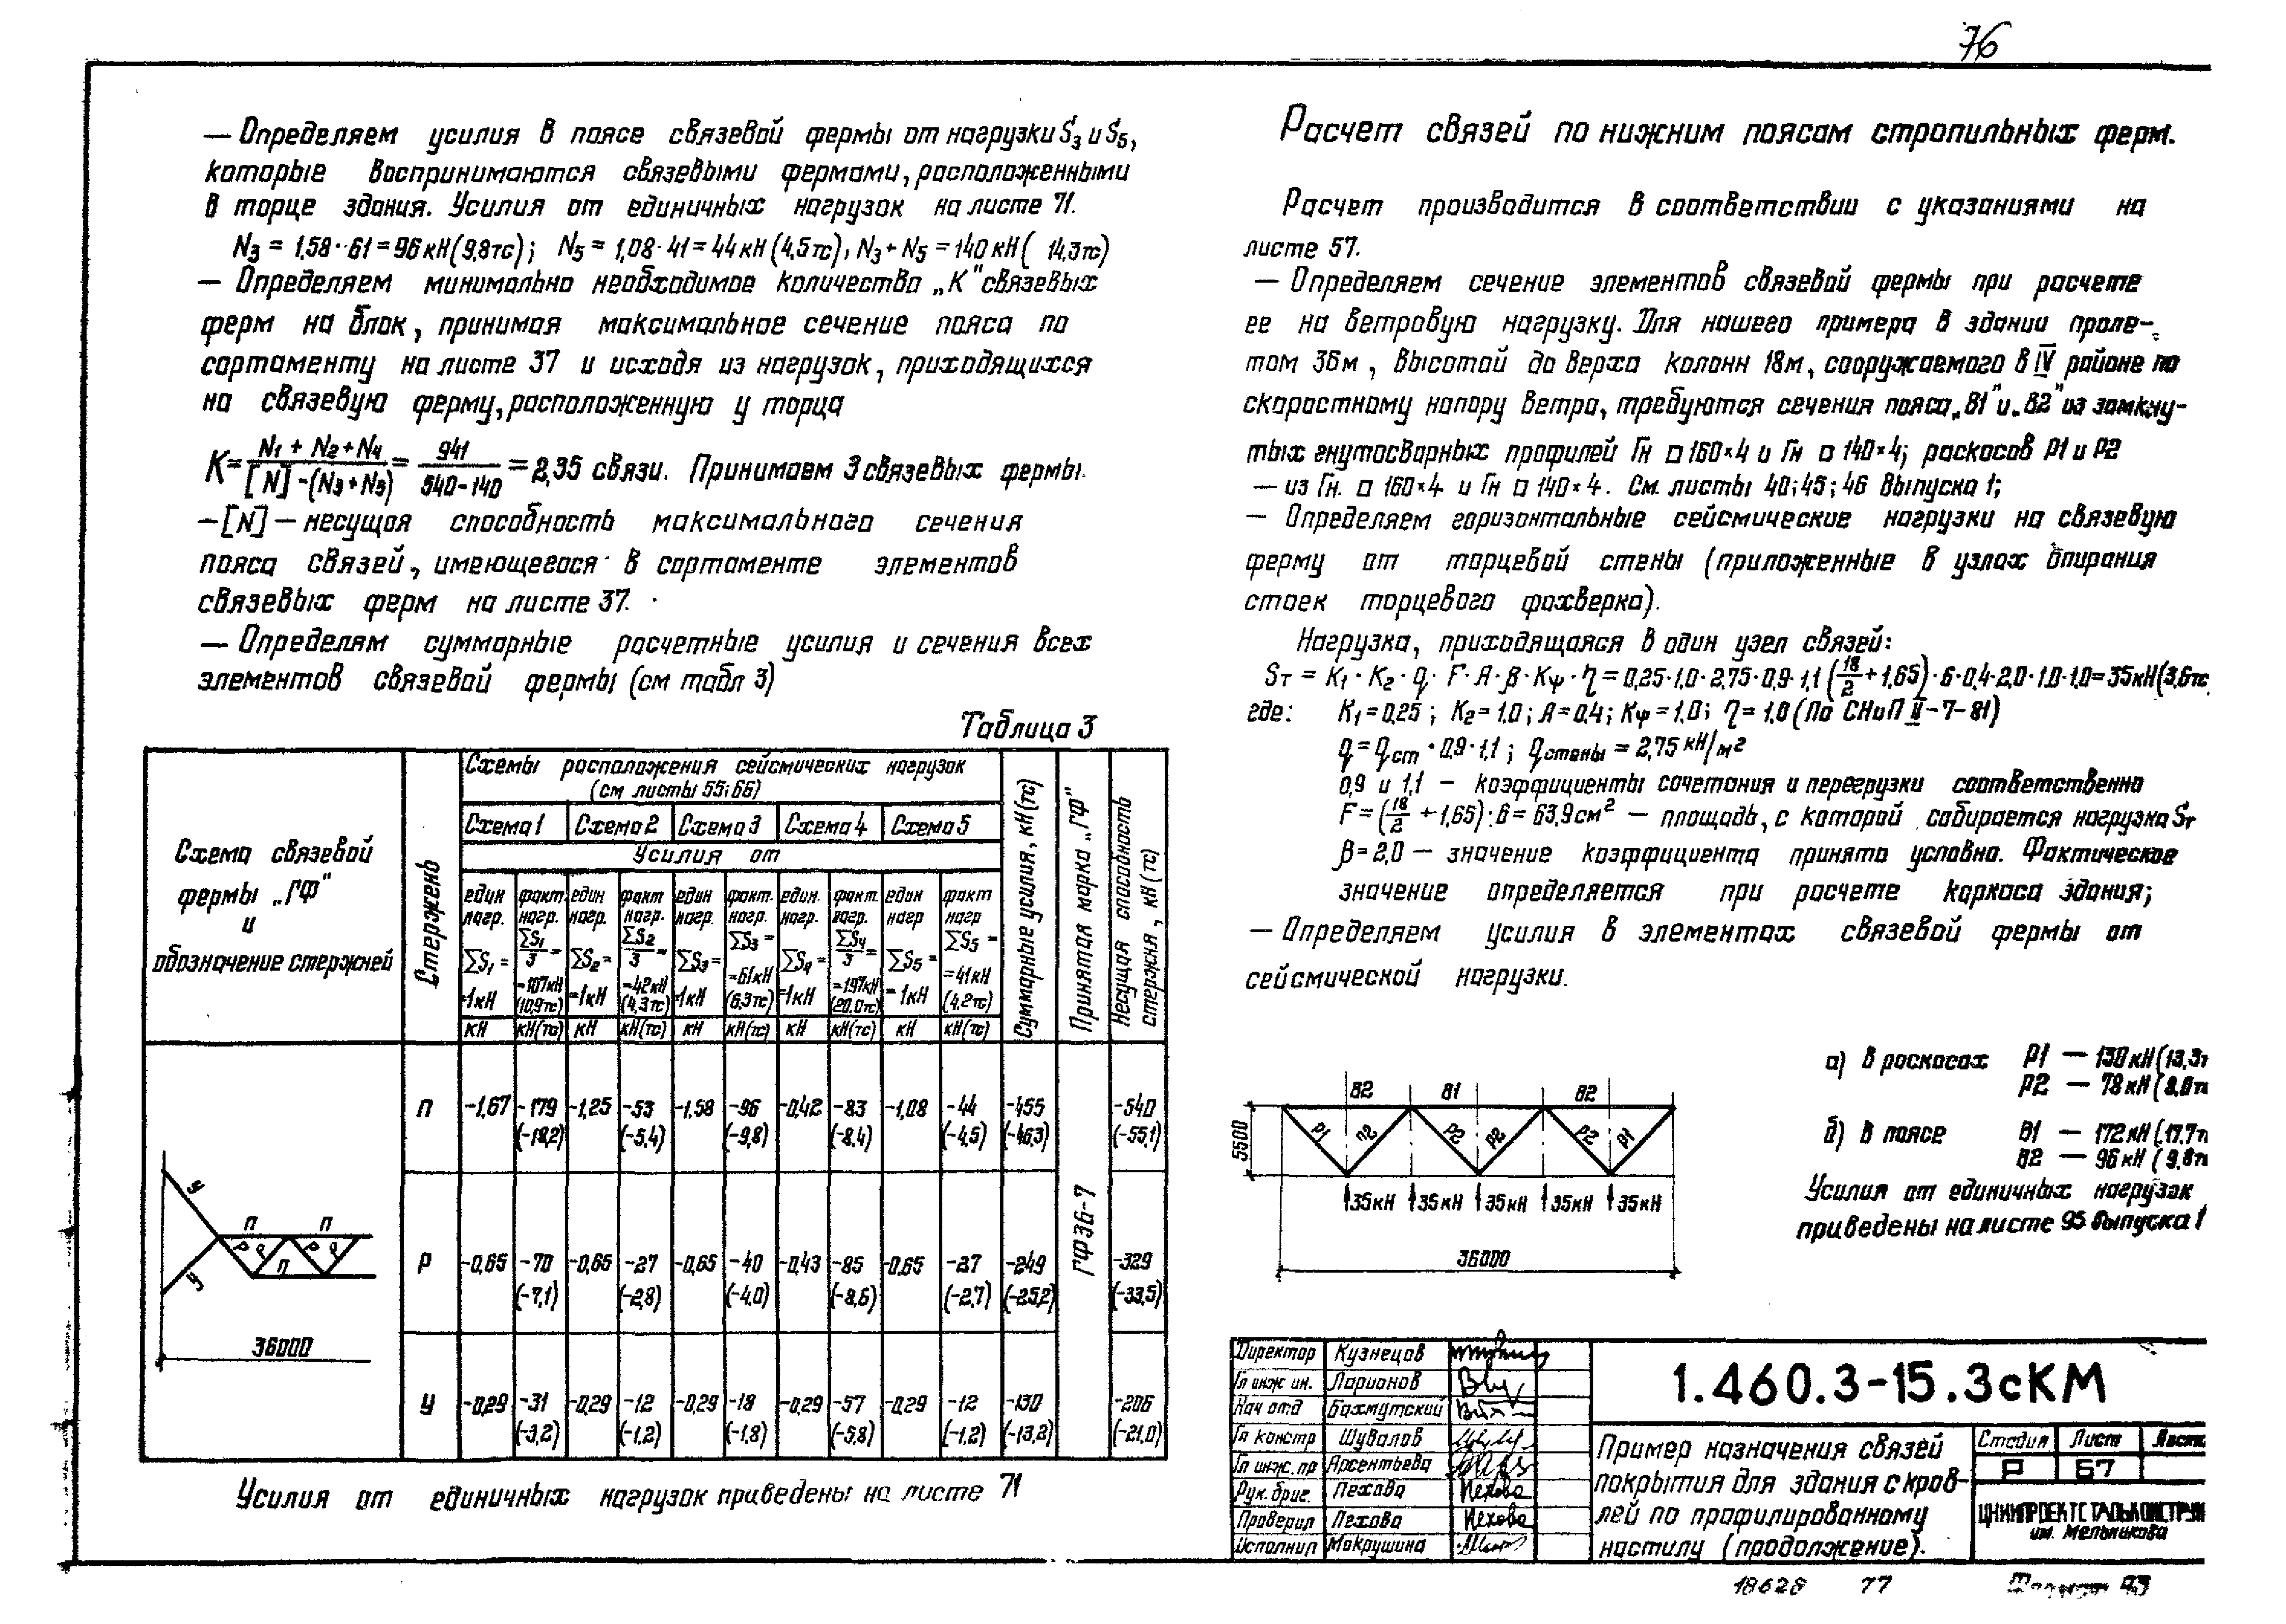 76
— Определяем усилия в поясе связевой фермы от нагрузки S₃ и S₅,
которые воспринимаются связевыми фермами, расположенными
в торце здания. Усилия от единичных нагрузок на листе 71.
N₃ = 1,58·61 = 96 кН (9,8тс); N₅ = 1,08·41 = 44 кН (4,5тс), N₃ + N₅ = 140 кН ( 14,3тс)
— Определяем минимально необходимое количество „К" связевых
ферм на блок, принимая максимальное сечение пояса по
сортаменту на листе 37 и исходя из нагрузок, приходящихся
на связевую ферму, расположенную у торца
К = (N₁ + N₂ + N₄) / ([N] - (N₃ + N₅)) = 941 / (540 - 140) = 2,35 связи. Принимаем 3 связевых фермы.
— [N] — несущая способность максимального сечения
пояса связей, имеющегося в сортаменте элементов
связевых ферм на листе 37.
— Определям суммарные расчетные усилия и сечения всех
элементов связевой фермы (см табл 3)
Таблица 3
Схема связевой
фермы „ГФ"
и
обозначение стержней
Стержень
Схемы расположения сейсмических нагрузок
(см листы 55; 66)
Схема 1 Схема 2 Схема 3 Схема 4 Схема 5
Усилия от
един факт. един факт един факт. един. факт. един факт
нагр. нагр. нагр. нагр. нагр. нагр. нагр. нагр. нагр нагр
ΣS₁ = 1кН ΣS₁/3 = 107кН (10,9тс) ΣS₂ = 1кН ΣS₂/3 = 42кН (4,3тс) ΣS₃ = 1кН ΣS₃ = 61кН (6,3тс) ΣS₄ = 1кН ΣS₄/3 = 197кН (20,0тс) ΣS₅ = 1кН ΣS₅ = 41кН (4,2тс)
кН кН(тс) кН кН(тс) кН кН(тс) кН кН(тс) кН кН(тс)
Суммарные усилия, кН (тс)
Принятая марка „ГФ"
Несущая способность
стержня, кН (тс)
П -1,67 -179 -1,25 -53 -1,58 -96 -0,42 -83 -1,08 -44 -455 -540
(-18,2) (-5,4) (-9,8) (-8,4) (-4,5) (-46,3) (-55,1)
Р -0,65 -70 -0,65 -27 -0,65 -40 -0,43 -85 -0,65 -27 -249 -329
(-7,1) (-2,8) (-4,0) (-8,6) (-2,7) (-25,2) (-33,5)
У -0,29 -31 -0,29 -12 -0,29 -18 -0,29 -57 -0,29 -12 -130 -206
(-3,2) (-1,2) (-1,8) (-5,8) (-1,2) (-13,2) (-21,0)
ГФ36-7
У
У
П П
Р Р
П
36000
Усилия от единичных нагрузок приведены на листе 71
Расчет связей по нижним поясам стропильных ферм.
Расчет производится в соответствии с указаниями на
листе 57.
— Определяем сечение элементов связевой фермы при расчете
ее на ветровую нагрузку. Для нашего примера в здании проле-
том 36м, высотой до верха колонн 18м, сооружаемого в IV районе по
скоростному напору ветра, требуются сечения пояса „В1" и „В2" из замкну-
тых гнутосварных профилей Гн □ 160×4 и Гн □ 140×4; раскосов Р1 и Р2
— из Гн. □ 160×4 и Гн □ 140×4. См. листы 40; 45; 46 выпуска 1;
— Определяем горизонтальные сейсмические нагрузки на связевую
ферму от торцевой стены (приложенные в узлах опирания
стоек торцевого фахверка).
Нагрузка, приходящаяся в один узел связей:
Sт = К₁·К₂·q·F·А·β·Кψ·η = 0,25·1,0·2,75·0,9·1,1 (18/2 + 1,65)·6·0,4·2,0·1,0·1,0 = 35кН (3,6тс
где: К₁ = 0,25; К₂ = 1,0; А = 0,4; Кψ = 1,0; η = 1,0 (По СНиП II-7-81)
q = qст·0,9·1,1; qстены = 2,75 кН/м²
0,9 и 1,1 — коэффициенты сочетания и перегрузки соответственно
F = (18/2 + 1,65)·6 = 63,9см² — площадь, с которой собирается нагрузка Sт
β = 2,0 — значение коэффициента принято условно. Фактическое
значение определяется при расчете каркаса здания;
— Определяем усилия в элементах связевой фермы от
сейсмической нагрузки.
В2 В1 В2
Р1 Р2 Р2 Р2 Р2 Р1
5500
35кН 35кН 35кН 35кН 35кН
36000
а) в раскосах Р1 — 130кН (13,3т
Р2 — 78кН (8,0тс
б) в поясе В1 — 172кН (17,7т
В2 — 96кН (9,8тс
Усилия от единичных нагрузок
приведены на листе 95 выпуска 1
Директор Кузнецов
Гл инж ин. Ларионов
Нач отд Бахмутский
Гл констр Шувалов
Гл инж. пр Арсентьева
Рук. бриг. Пехова Пехова
Проверил Пехова Пехова
Исполнил Мокрушина
1.460.3-15.3сКМ
Пример назначения связей
покрытия для здания с кров-
лей по профилированному
настилу (продолжение).
Стадия Лист Листов
Р 67
ЦНИИПРОЕКТСТАЛЬКОНСТРУК
им. Мельникова
18628 77
Формат А3